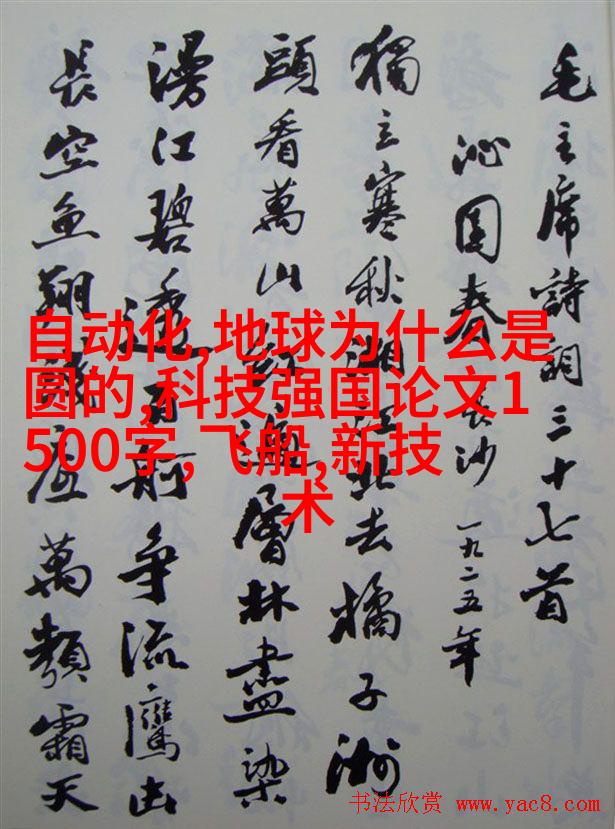 毛主席詩詞三十七首
沁园春 長沙 一九二五年
獨立寒秋湘江北去橘子洲
頭看萬山紅遍層林盡染
漫江碧透百舸争流鷹击
長空魚翔淺底萬類霜天
自动化,地球为什么是
圆的,科技强国论文1
500字,飞船,新技
术
书法欣赏 www.yac8.com